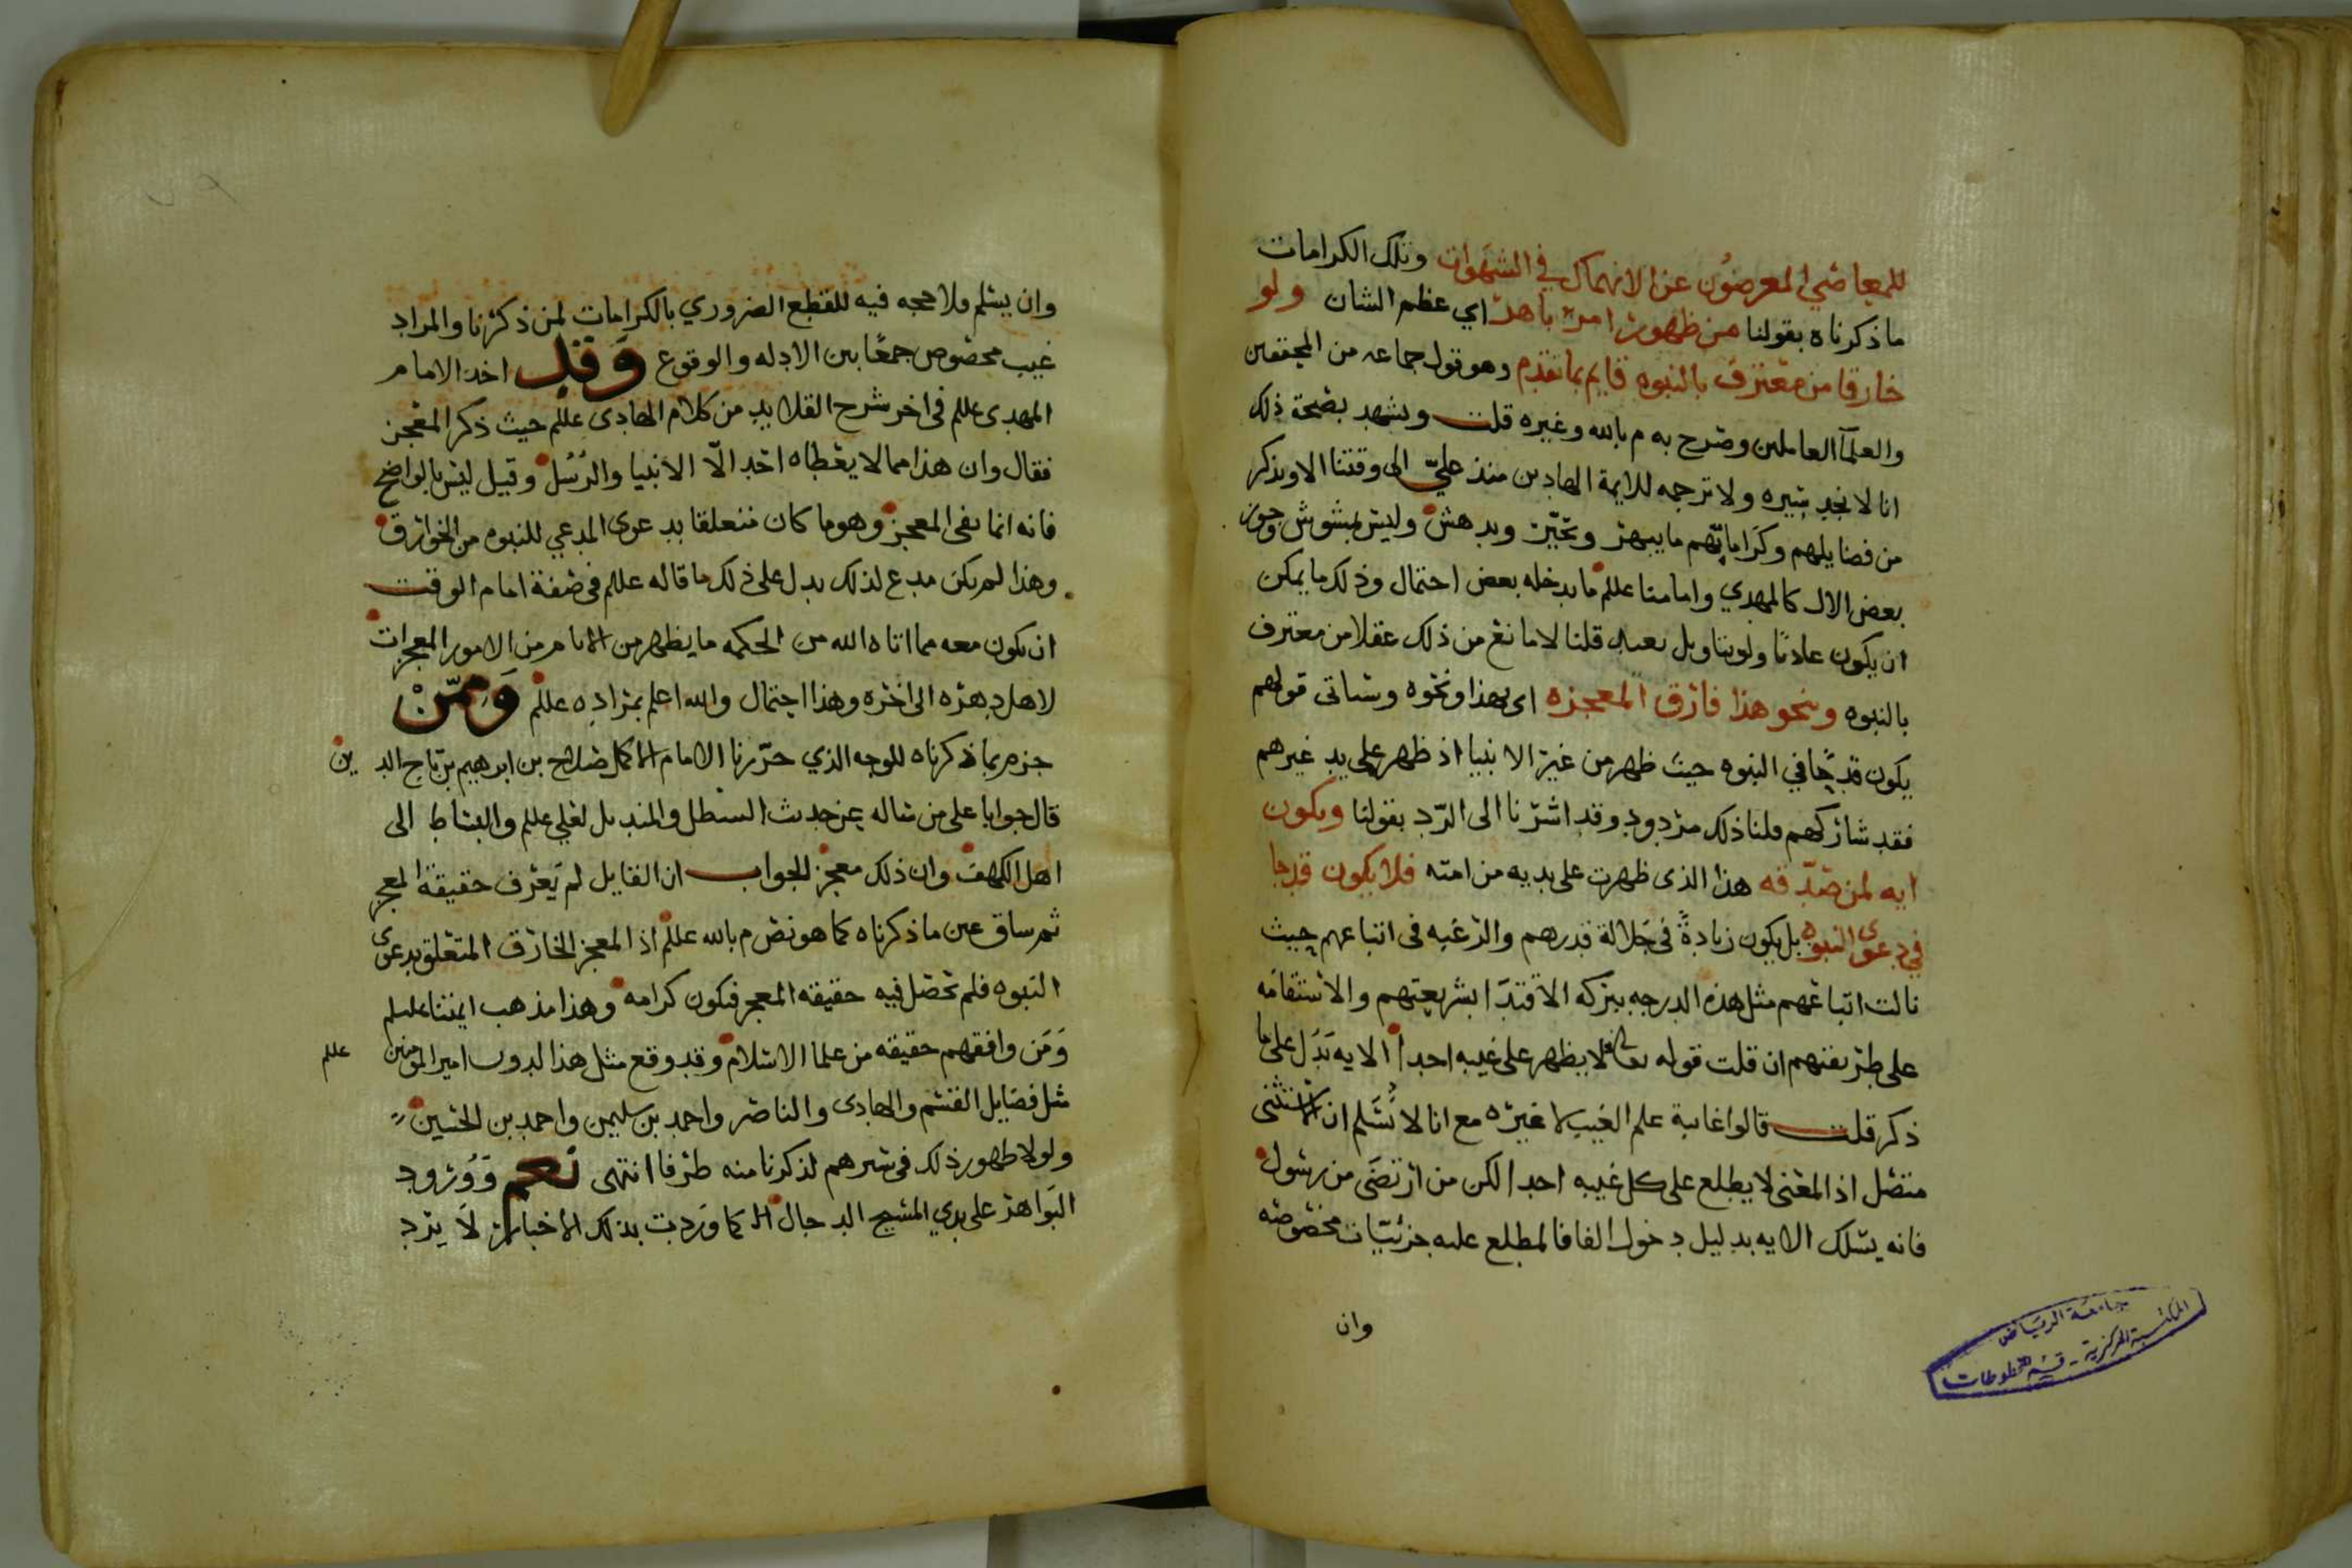 للمعاصي المعرضون عن الانهماك في الشهوات وتلك الكرامات
ما ذكرناه بقولنا من ظهور امر باهر اي عظم الشان ولو
خارقا من معترف بالنبوه قايم بما تقدم وهو قول جماعه من المحققين
والعلمآ العاملين وصرح به م بالله وغيره قلت ويشهد بصحة ذلك
انا لا نجد سيره ولا ترجمه للايمة الهادين منذ علي الى وقتنا الا ويذكر
من فضايلهم وكراماتهم ما يبهر ويحير ويدهش وليس بمشوش وجوز
بعض الال كالمهدي وامامنا عللم ما يدخله بعض احتمال وذلك ما يمكن
ان يكون عادتا ولو بتاويل بعيد قلنا لا مانع من ذلك عقلا من معترف
بالنبوه وبنحو هذا فارق المعجزه اى بهذا ونحوه وسياتى قولهم
يكون قدحًا في النبوه حيث ظهر من غير الانبيا اذ ظهر على يد غيرهم
فقد شاركهم قلنا ذلك مردود وقد اشرنا الى الرد بقولنا ويكون
ايه لمن صدقه هذا الذى ظهرت على يديه من امته فلا يكون قدحا
في دعوى النبوه بل يكون زيادةً في جلالة قدرهم والرغبه فى اتباعهم حيث
نالت اتباعهم مثل هذه الدرجه ببركه الاقتدا بشريعتهم والاستقامه
على طريقتهم ان قلت قوله تعالى فلا يظهر على غيبه احدا الايه تدل على ما
ذكر قلت قالوا غايبة علم الغيب لا غيره مع انا لا نسلم ان الاستثنى
متصل اذ المعنى لا يطلع على كل غيبه احدا لكن من ارتضى من رسول
فانه يسلك الايه بدليل دخول الفا فالمطلع عليه جزئيات مخصوصه
وان
جامعة الرياض
المكتبة المركزية - قسم المخطوطات
وان يسلم فلا حجه فيه للقطع الضروري بالكرامات لمن ذكرنا والمراد
غيب مخصوص جمعًا بين الادله والوقوع وقد اخذ الامام
المهدى عللم فى اخر شرح القلايد من كلام الهادى عللم حيث ذكر المعجز
فقال وان هذا مما لا يعطاه احد الّا الانبيا والرُسُل وقيل ليس بالواضح
فانه انما نفى المعجز وهو ما كان متعلقا بدعوى المدعي للنبوه من الخوارق
وهذا لم يكن مدع لذلك يدل على ذلك ما قاله عللم فى صفة امام الوقت
ان يكون معه مما اتاه الله من الحكمه ما يظهر من الامام من الامور المعجزات
لاهل دهره الى اخره وهذا احتمال والله اعلم بمراده عللم وَممّنْ
جزم بما ذكرناه للوجه الذي حررنا الامام الاكمل صلاح بن ابرهيم بن تاج الدين
قال جوابا على من ساله عن حديث السطل والمنديل لعلي عللم والبساط الى
اهل الكهف وان ذلك معجز الجواب ان القايل لم يَعرف حقيقة المعجز
ثم ساق عين ما ذكرناه كما هو نص م بالله عللم اذ المعجز الخارق المتعلق بدعوى
النبوه فلم تحصل فيه حقيقه المعجز فيكون كرامه وهذا مذهب ايمتنا عليلم
وَمَن وافقهم حقيقه من علما الاسلام وقد وقع مثل هذا لدون امير المومنين عللم
مثل فضايل القسم والهادى والناصر واحمد بن سليمن واحمد بن الحسين
ولولا ظهور ذلك فى سيرهم لذكرنا منه طرفا انتهى نعم وَوُرُود
البَواهر على يدي المسيح الدجال كما وَردت بذلك الاخبار لَا يرد